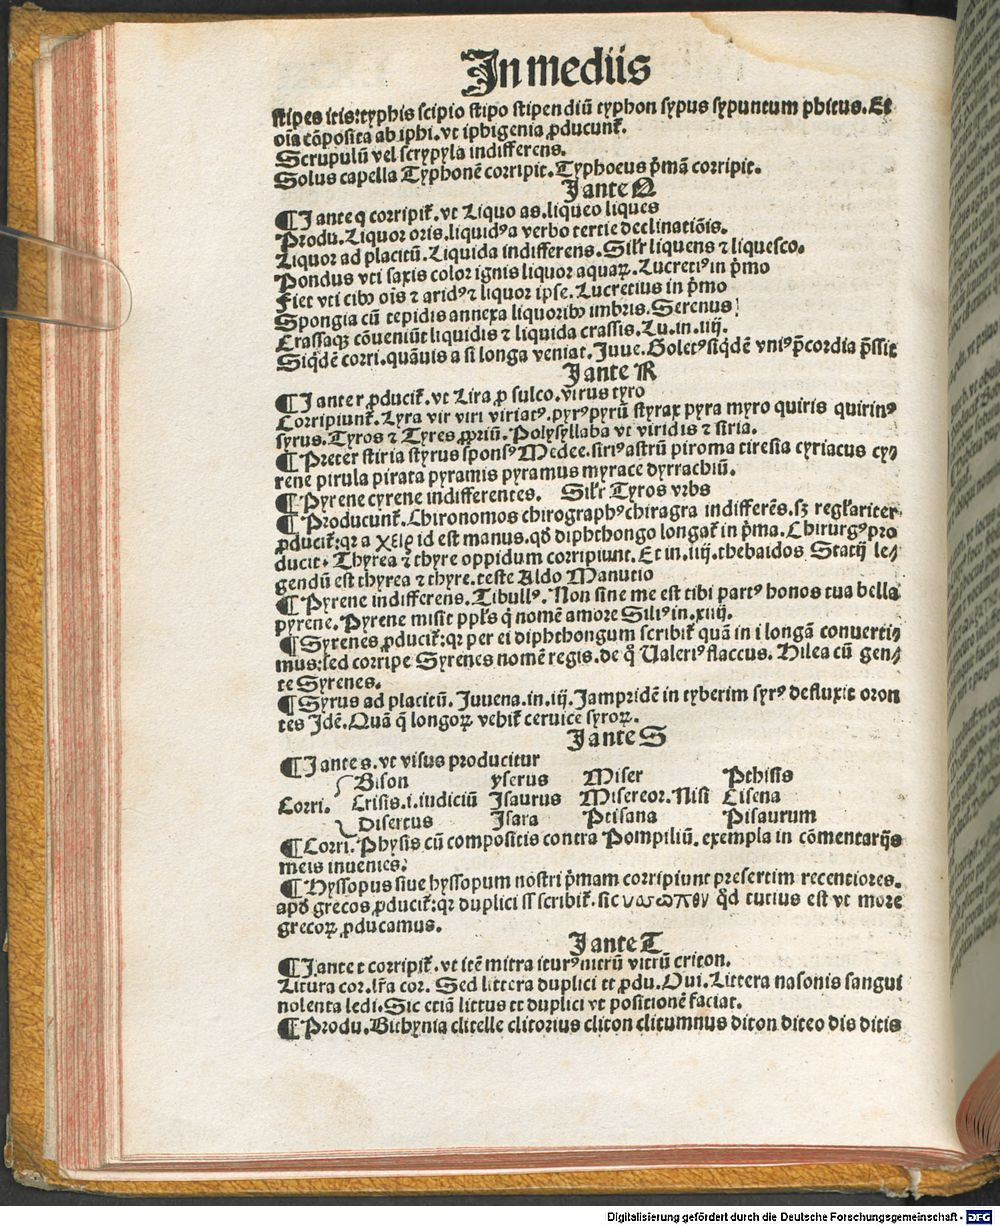 In mediis
stipes itis:typhis scipio stipo stipendiū typhon sypus sypuntum phitus. Et
oīa cōposita ab iphi. vt iphigenia ꝓducunt̄.
Scrupulū vel scrypyla indifferens.
Solus capella Typhonē corripit. Typhoeus p̄mā corripit.
I ante Q
¶ I ante q corripit̄. vt Liquo as. liqueo liques
Produ. Liquor oris. liquidꝰa verbo tertie declinatiōis.
Liquor ad placitū. Liquida indifferens. Silr̄ liquens ⁊ liquesco.
Pondus vti saxis color ignis liquor aquaꝝ. Lucretiꝰ in p̄mo
Fiet vti cibꝰ oīs ⁊ aridꝰ ⁊ liquor ipse. Lucretius in p̄mo
Spongia cū tepidis annexa liquoribꝰ imbris. Serenus
Crassaqꝫ cōueniūt liquidis ⁊ liquida crassis. Lu. in. iiij.
Siqdē corri. quāuis a si longa veniat. Juue. Boletꝰ siqdē vniꝰ p̄cordia p̄ssit
I ante R
¶ I ante r ꝓducit̄. vt Lira ꝓ sulco. virus tyro
Corripiunt̄. Lyra vir viri viriatꝰ. pyrꝰ pyrū styrax pyra myro quiris quirinꝰ
syrus. Tyros ⁊ Tyres ꝓpriū. Polysyllaba vt viridis ⁊ siria.
¶ Preter stiria styrus sponsꝰ Medee. siriꝰ astrū piroma tiresia cyriacus cy⸗
rene pirula pirata pyramis pyramus myrace dyrrachiū.
¶ Pyrene cyrene indifferentes. Silr̄ Tyros vrbs
¶ Producunt̄. Chironomos chirographꝰ chiragra indifferēs. sꝫ reglariter
ꝓducit̄: qꝛ a χειρ id est manus. qď diphthongo longat̄ in p̄ma. Chirurgꝰ pro
ducit. Thyrea ⁊ thyre oppidum corripiunt. Et in. iiij. thebaidos Statij le⸗
gendū est thyrea ⁊ thyre. teste Aldo Manutio
¶ Pyrene indifferens. Tibullꝰ. Non sine me est tibi partꝰ honos tua bella
pyrene. Pyrene misit ppl̄s q̄ nomē amore Siliꝰ in. xiiij.
¶ Syrenes ꝓducit̄: qꝛ per ei diphthongum scribit̄ quā in i longā conuerti⸗
mus: sed corripe Syrenes nomē regis. de q̄ Ualeriꝰ flaccus. Hilea cū gen⸗
te Syrenes.
¶ Syrus ad placitū. Juuena. in. iij. Jampridē in tyberim syrꝰ defluxit oron
tes Idē. Quā q̄ longoꝝ vehit̄ ceruice syroꝝ.
I ante S
¶ I ante s. vt visus producitur
Bison yserus Miser Pthisis
Corri. Crisis. i. iudiciū Isaurus Misereor. Nisi Cisena
Disertus Isara Ptisana Pisaurum
¶ Corri. Physis cū compositis contra Pompiliū. exempla in cōmentarijs
meis inuenies.
¶ Hyssopus siue hyssopum nostri p̄mam corripiunt presertim recentiores.
apď grecos ꝓducit̄: qꝛ duplici ss scribit̄. sic υσσωπου qď tutius est vt more
grecoꝝ ꝓducamus.
I ante T
¶ I ante t corripit̄. vt itē mitra iturꝰ nitrū vitrū criton.
Litura cor. lr̄a cor. Sed littera duplici tt ꝓdu. Oui. Littera nasonis sangui
nolenta legi. Sic etiā littus tt duplici vt positionē faciat.
¶ Produ. Bithynia clitelle clitorius cliton clitumnus diton diteo dis ditis
Digitalisierung gefördert durch die Deutsche Forschungsgemeinschaft - DFG